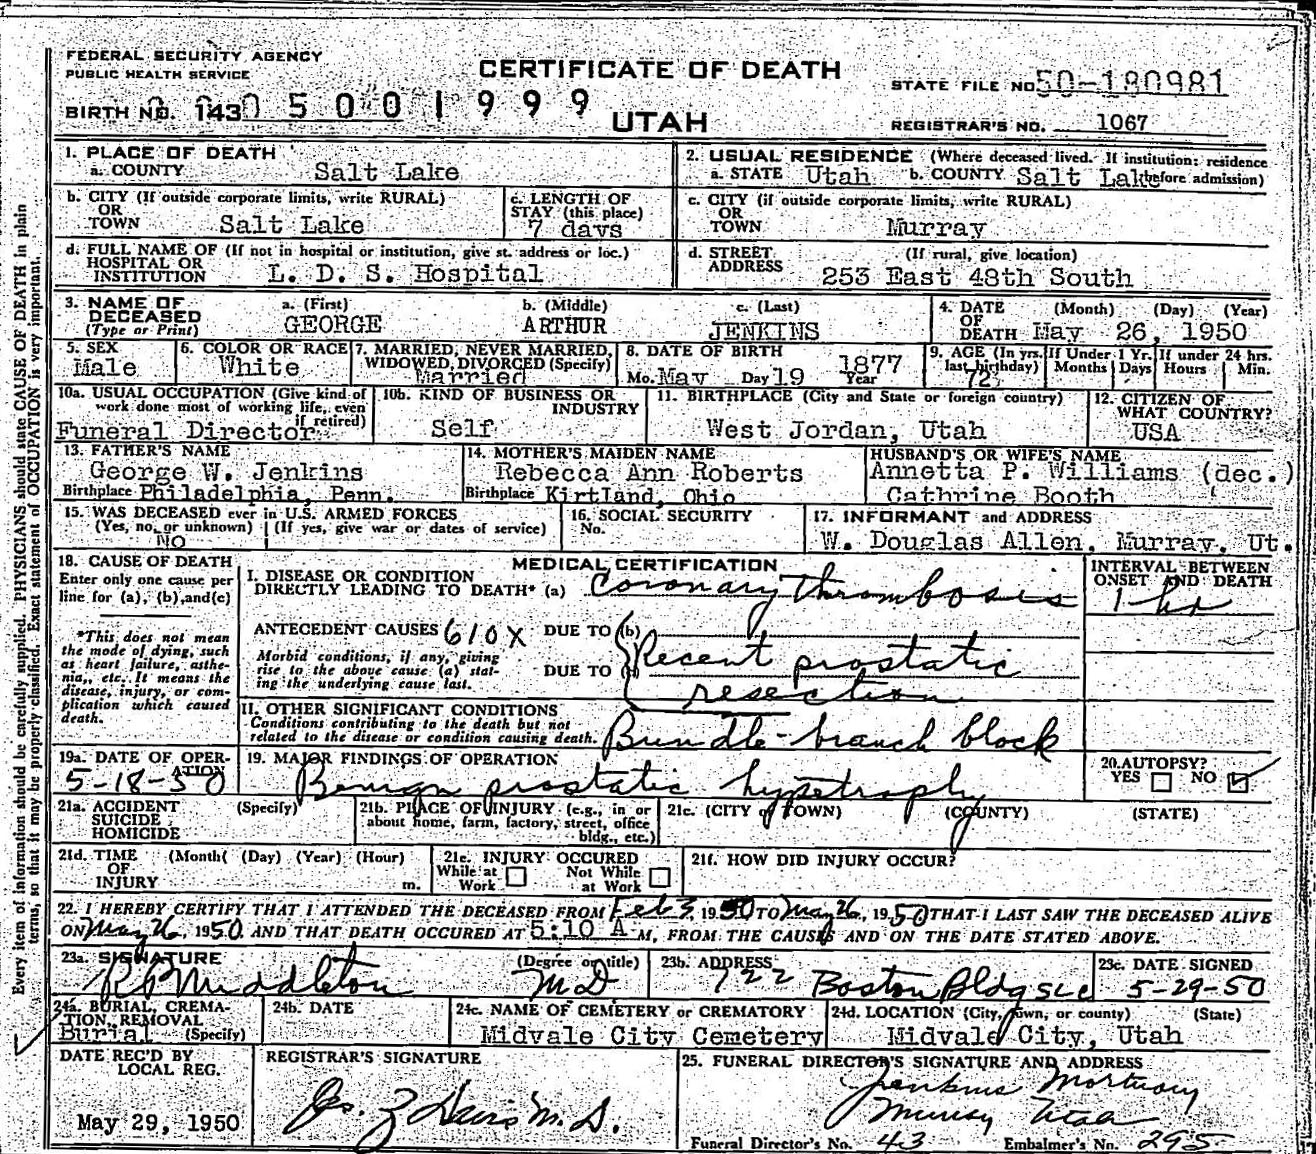 FEDERAL SECURITY AGENCY
PUBLIC HEALTH SERVICE
CERTIFICATE OF DEATH
STATE FILE NO 50-180981
BIRTH NO. 1430 5 0 0 1 9 9 9
UTAH
REGISTRAR'S NO. 1067
1. PLACE OF DEATH
a. COUNTY Salt Lake
2. USUAL RESIDENCE (Where deceased lived. If institution: residence before admission)
a. STATE Utah b. COUNTY Salt Lake
b. CITY (If outside corporate limits, write RURAL)
OR
TOWN Salt Lake
c. LENGTH OF
STAY (this place)
7 days
c. CITY (if outside corporate limits, write RURAL)
OR
TOWN Murray
d. FULL NAME OF (If not in hospital or institution, give st. address or loc.)
HOSPITAL OR
INSTITUTION L. D. S. Hospital
d. STREET (If rural, give location)
ADDRESS 253 East 48th South
3. NAME OF DECEASED
(Type or Print)
a. (First) b. (Middle) c. (Last)
GEORGE ARTHUR JENKINS
4. DATE (Month) (Day) (Year)
OF
DEATH May 26, 1950
5. SEX
Male
6. COLOR OR RACE
White
7. MARRIED, NEVER MARRIED,
WIDOWED, DIVORCED (Specify)
Married
8. DATE OF BIRTH
Mo. May Day 19 1877 Year
9. AGE (In yrs. last birthday)
72
If Under 1 Yr. Months Days
If under 24 hrs. Hours Min.
10a. USUAL OCCUPATION (Give kind of
work done most of working life, even
if retired)
Funeral Director
10b. KIND OF BUSINESS OR
INDUSTRY
Self
11. BIRTHPLACE (City and State or foreign country)
West Jordan, Utah
12. CITIZEN OF
WHAT COUNTRY?
USA
13. FATHER'S NAME
George W. Jenkins
Birthplace Philadelphia, Penn.
14. MOTHER'S MAIDEN NAME
Rebecca Ann Roberts
Birthplace Kirtland, Ohio
HUSBAND'S OR WIFE'S NAME
Annetta P. Williams (dec.)
Cathrine Booth
15. WAS DECEASED ever in U.S. ARMED FORCES
(Yes, no, or unknown) (If yes, give war or dates of service)
No
16. SOCIAL SECURITY
No.
17. INFORMANT and ADDRESS
W. Douglas Allen, Murray, Ut.
18. CAUSE OF DEATH
Enter only one cause per
line for (a), (b), and (c)
*This does not mean
the mode of dying, such
as heart failure, asthe-
nia, etc. It means the
disease, injury, or com-
plication which caused
death.
MEDICAL CERTIFICATION
I. DISEASE OR CONDITION
DIRECTLY LEADING TO DEATH* (a) Coronary thrombosis
INTERVAL BETWEEN
ONSET AND DEATH
1 hr
ANTECEDENT CAUSES 610X DUE TO (b)
Morbid conditions, if any, giving
rise to the above cause (a) stat-
ing the underlying cause last.
DUE TO Recent prostatic
resection
II. OTHER SIGNIFICANT CONDITIONS
Conditions contributing to the death but not
related to the disease or condition causing death.
Bundle-branch block
19a. DATE OF OPER-
ATION
5-18-50
19. MAJOR FINDINGS OF OPERATION
Benign prostatic hypetrophy
20. AUTOPSY?
YES NO
21a. ACCIDENT (Specify)
SUICIDE
HOMICIDE
21b. PLACE OF INJURY (e.g., in or
about home, farm, factory, street, office
bldg., etc.)
21c. (CITY or TOWN) (COUNTY) (STATE)
21d. TIME (Month( (Day) (Year) (Hour)
OF
INJURY m.
21e. INJURY OCCURED
While at Work
Not While at Work
21f. HOW DID INJURY OCCUR?
22. I HEREBY CERTIFY THAT I ATTENDED THE DECEASED FROM Feb 3, 1950 TO May 26, 1950 THAT I LAST SAW THE DECEASED ALIVE
ON May 26, 1950 AND THAT DEATH OCCURED AT 5:10 A M, FROM THE CAUSES AND ON THE DATE STATED ABOVE.
23a. SIGNATURE (Degree or title)
Middleton MD
23b. ADDRESS
722 Boston Bldg SLC
23c. DATE SIGNED
5-29-50
24a. BURIAL, CREMA-
TION, REMOVAL
Burial (Specify)
24b. DATE
24c. NAME OF CEMETERY or CREMATORY
Midvale City Cemetery
24d. LOCATION (City, town, or county) (State)
Midvale City, Utah
DATE REC'D BY
LOCAL REG.
May 29, 1950
REGISTRAR'S SIGNATURE
M.D.
25. FUNERAL DIRECTOR'S SIGNATURE AND ADDRESS
Jenkins Mortuary
Murray Utah
Funeral Director's No. 43 Embalmer's No. 295
Every item of information should be carefully supplied. PHYSICIANS should state CAUSE OF DEATH in plain
terms, so that it may be properly classified. Exact statement of OCCUPATION is very important.